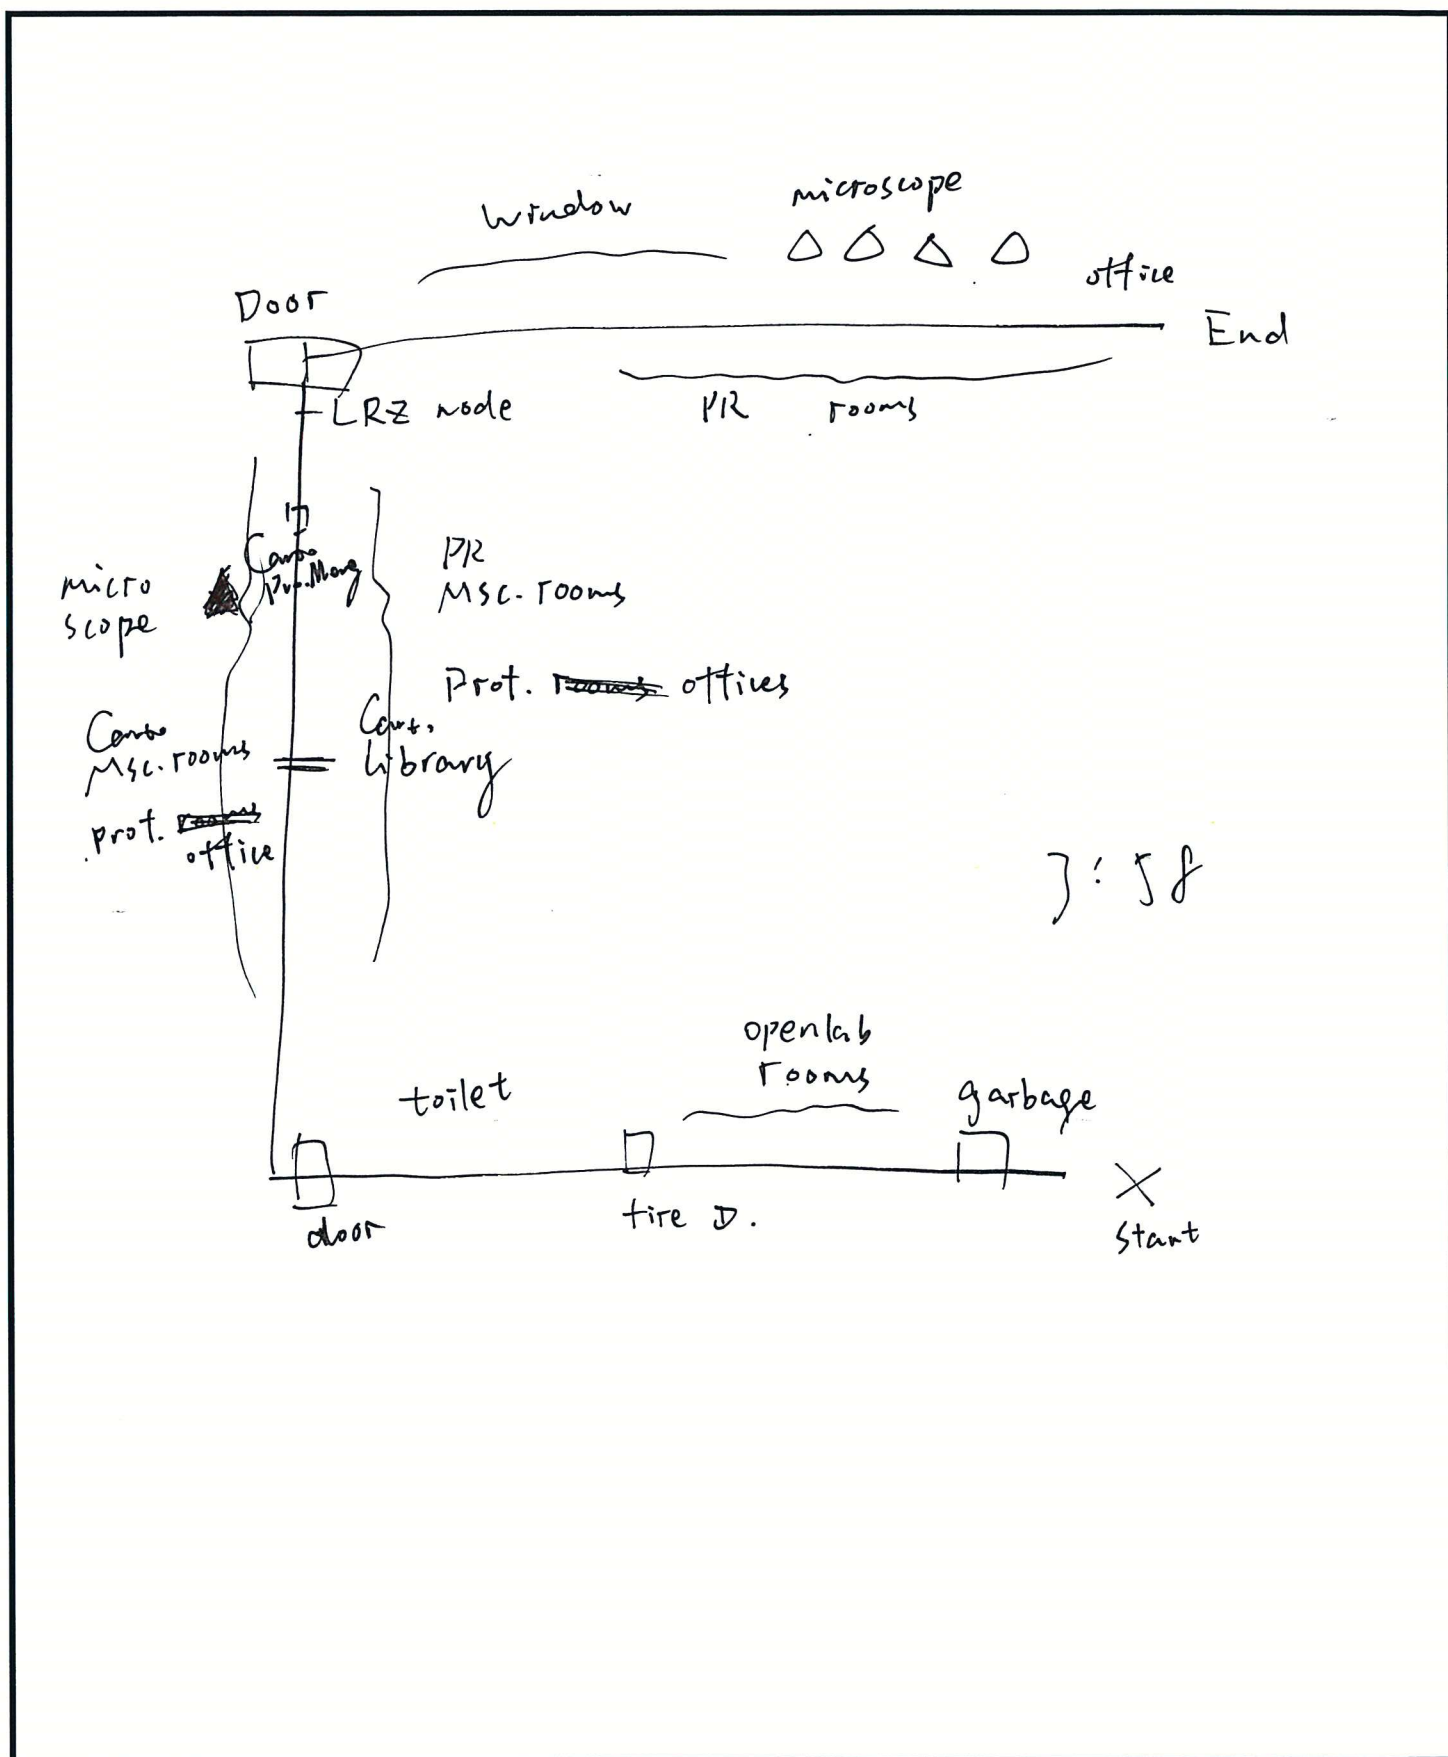 window
microscope
office
Door
End
LRZ node
PR rooms
Carto
Pro. Meng
PR
Msc. rooms
micro
scope
Prot. rooms offices
Carto
Msc. rooms
Cart.
library
prot. rooms
office
3:58
openlab
rooms
toilet
garbage
door
fire D.
Start